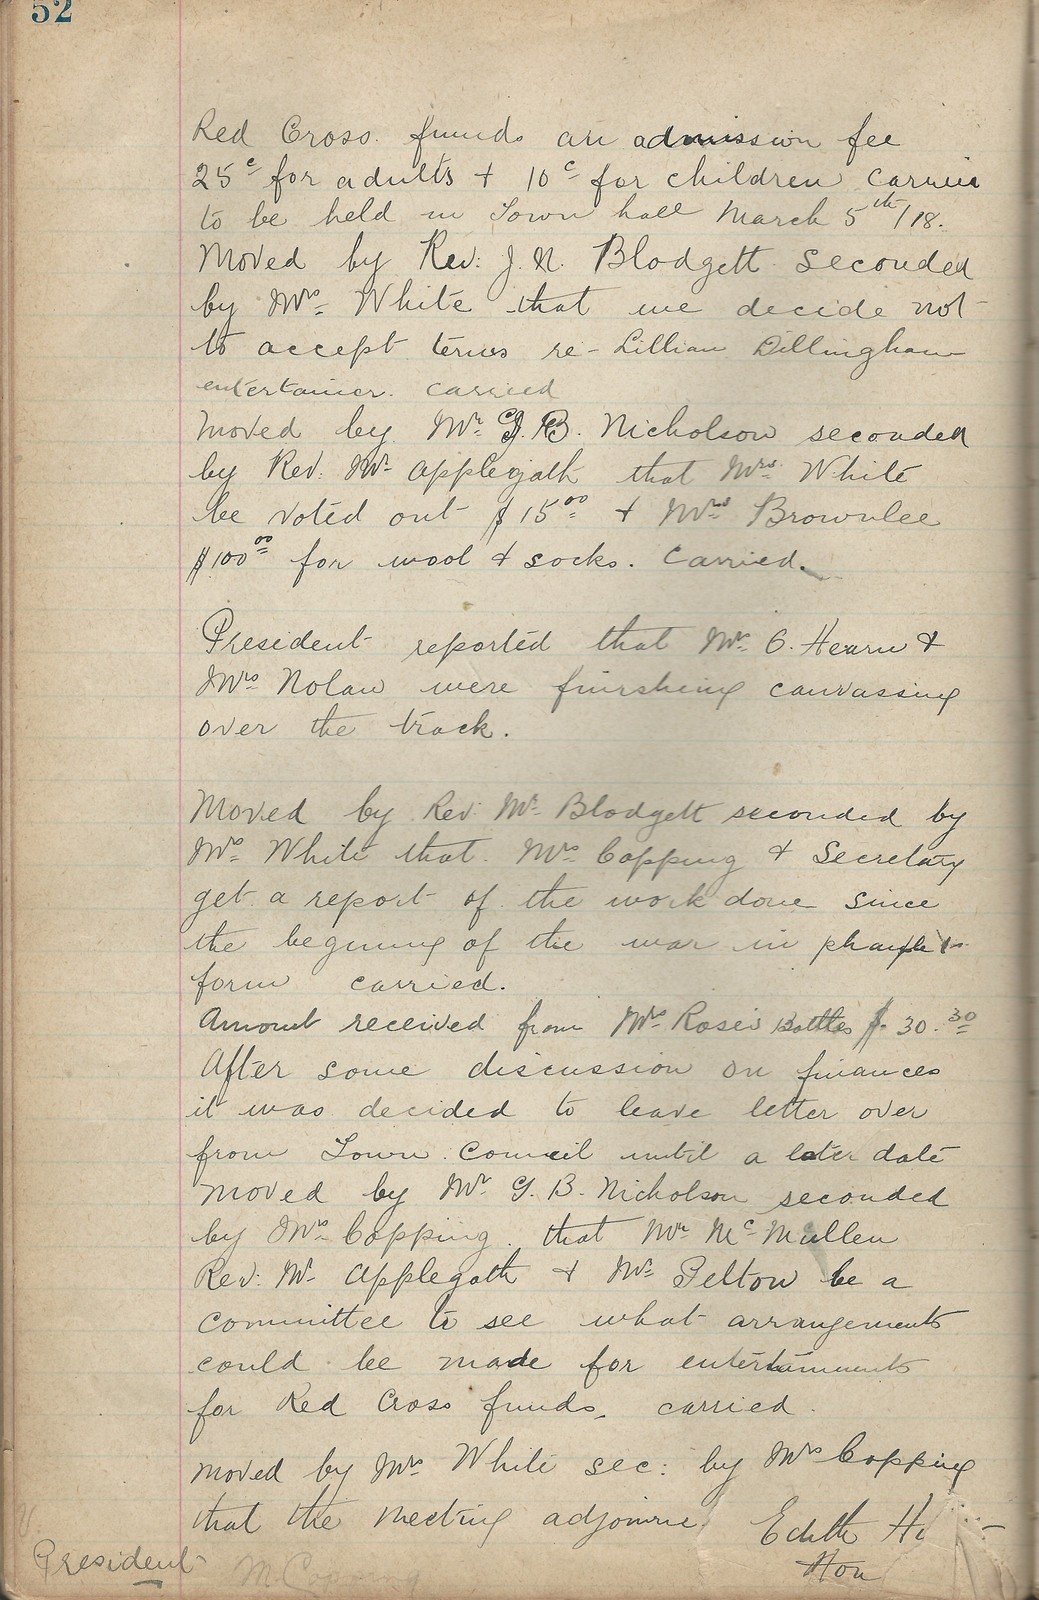 52
Red Cross. funds an admission fee
25c for adults + 10c for children carried
to be held in Town hall March 5th/18.
Moved by Rev: J. N. Blodgett seconded
by Mrs. White that we decide not
to accept terms re- Lillian Dillingham
entertainer. carried
Moved by Mr. G. B. Nicholson seconded
by Rev. Mr. Applegath that Mrs. White
be voted out $15.00 + Mrs. Brownlee
$100.00 for wool & socks. Carried.
President reported that Mr. O. Hearn &
Mrs. Nolan were finishing canvassing
over the track.
Moved by Rev: Mr. Blodgett seconded by
Mrs. White that. Mrs. Copping & Secretary
get a report of the work done since
the begining of the war in
form carried.
Amount received from Mrs. Rose's Bottles $. 30.30
After some discussion on finances
it was decided to leave letter over
from Town Council until a later date
Moved by Mr. G. B. Nicholson seconded
by Mrs. Copping. that Mr. McMullen
Rev: Mr. Applegath & Mr. Felton be a
committee to see what arrangements
could be made for entertainments
for Red Cross funds, carried.
Moved by Mrs. White sec: by Mrs Copping
that the meeting adjourn
Edith
Hon
President
M Copping